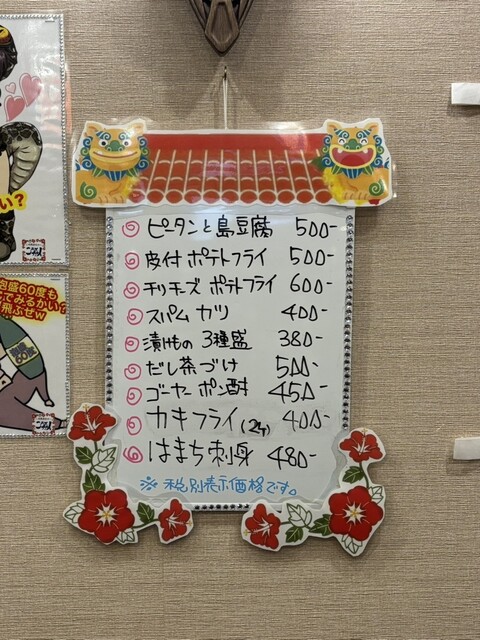 ピータンと島豆腐 500-
皮付ポテトフライ 500-
チリチーズ ポテトフライ 600-
スパム カツ 400-
漬けもの 3種盛 380-
だし茶づけ 500-
ゴーヤー ポン酢 450-
カキフライ(2ヶ) 400-
はまち刺身 480-
※ 税別表示価格です。
い?
泡盛60度も
飛ぶぜw